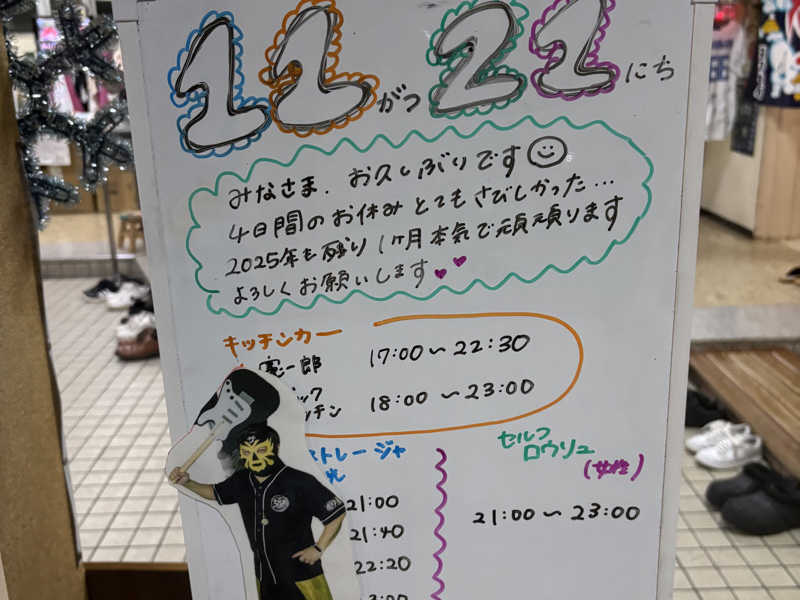 11がつ21にち
みなさま、お久しぶりです
4日間のお休みとてもさびしかった…
2025年も残り1ヶ月本気で頑張ります
よろしくお願いします
キッチンカー
憲一郎 17:00〜22:30
ック
ッチン 18:00〜23:00
ストレージャ
光
21:00
21:40
22:20
セルフ
ロウリュ
(女性)
21:00〜23:00